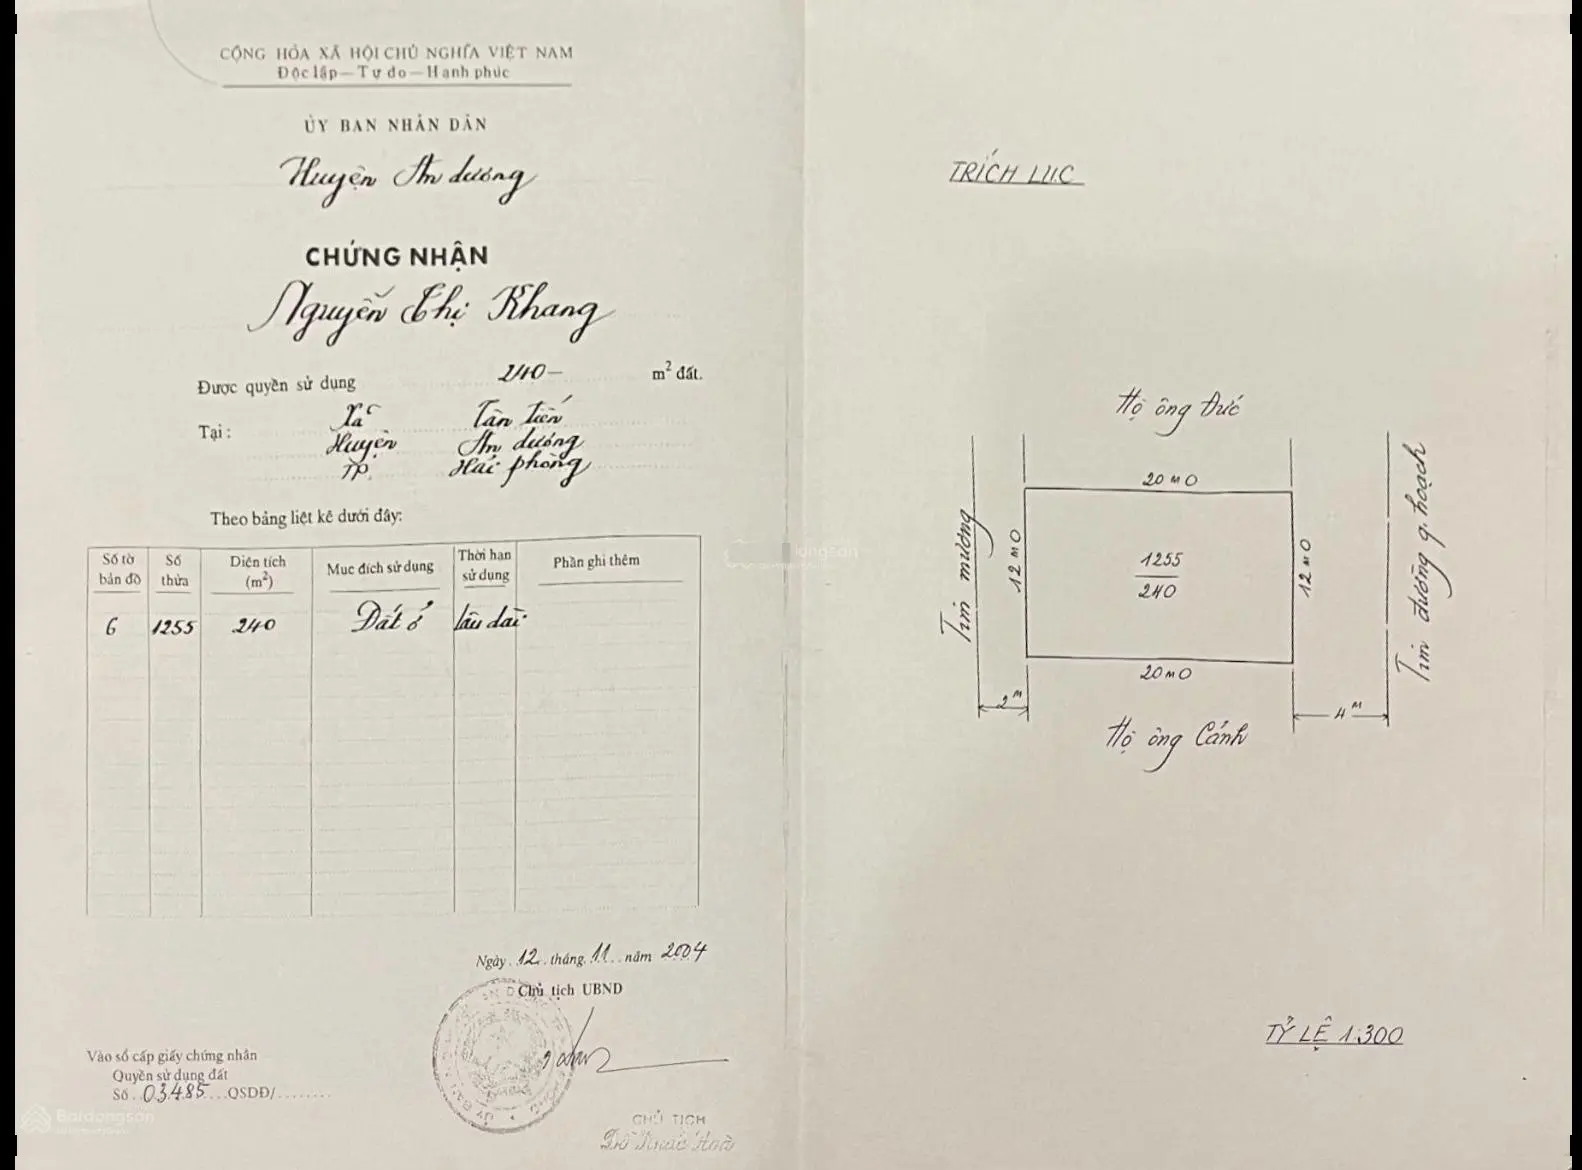 CỘNG HÒA XÃ HỘI CHỦ NGHĨA VIỆT NAM
Độc lập—Tự do—Hạnh phúc
ỦY BAN NHÂN DÂN
Huyện An dương
CHỨNG NHẬN
Nguyễn Thị Khang
Được quyền sử dụng 240- m² đất.
Tại: Xã Tân Tiến
Huyện An dương
TP. Hải phòng
Theo bảng liệt kê dưới đây:
Số tờ bản đồ Số thửa Diện tích (m²) Mục đích sử dụng Thời hạn sử dụng Phần ghi thêm
6 1255 240 Đất ở lâu dài
Ngày 12 tháng 11 năm 2004
Chủ tịch UBND
Vào sổ cấp giấy chứng nhận
Quyền sử dụng đất
Số 03485 QSDĐ/
CHỦ TỊCH
Batdongsan
TRÍCH LỤC
Hộ ông Đức
20M0
Tim mương
12M0
1255
240
12M0
Tim đường q. hoạch
20M0
2M
4M
Hộ ông Cảnh
TỶ LỆ 1:300